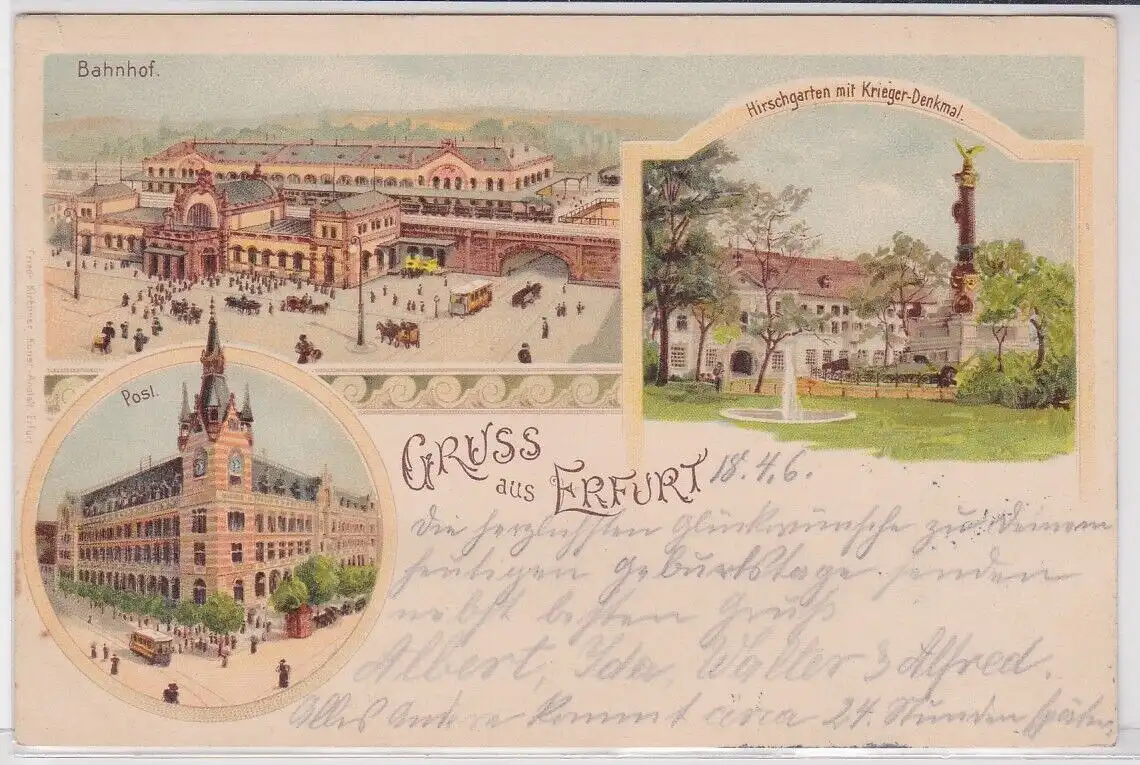 Bahnhof.
Hirschgarten mit Krieger-Denkmal.
Post.
GRUSS
aus ERFURT
18.4.6.
Die herzlichsten Glückwünsche zu Deinem
heutigen Geburtstage senden
nebst besten Gruß
Albert, Ida, Walter & Alfred.
Alles Andere kommt circa 24 Stunden später.